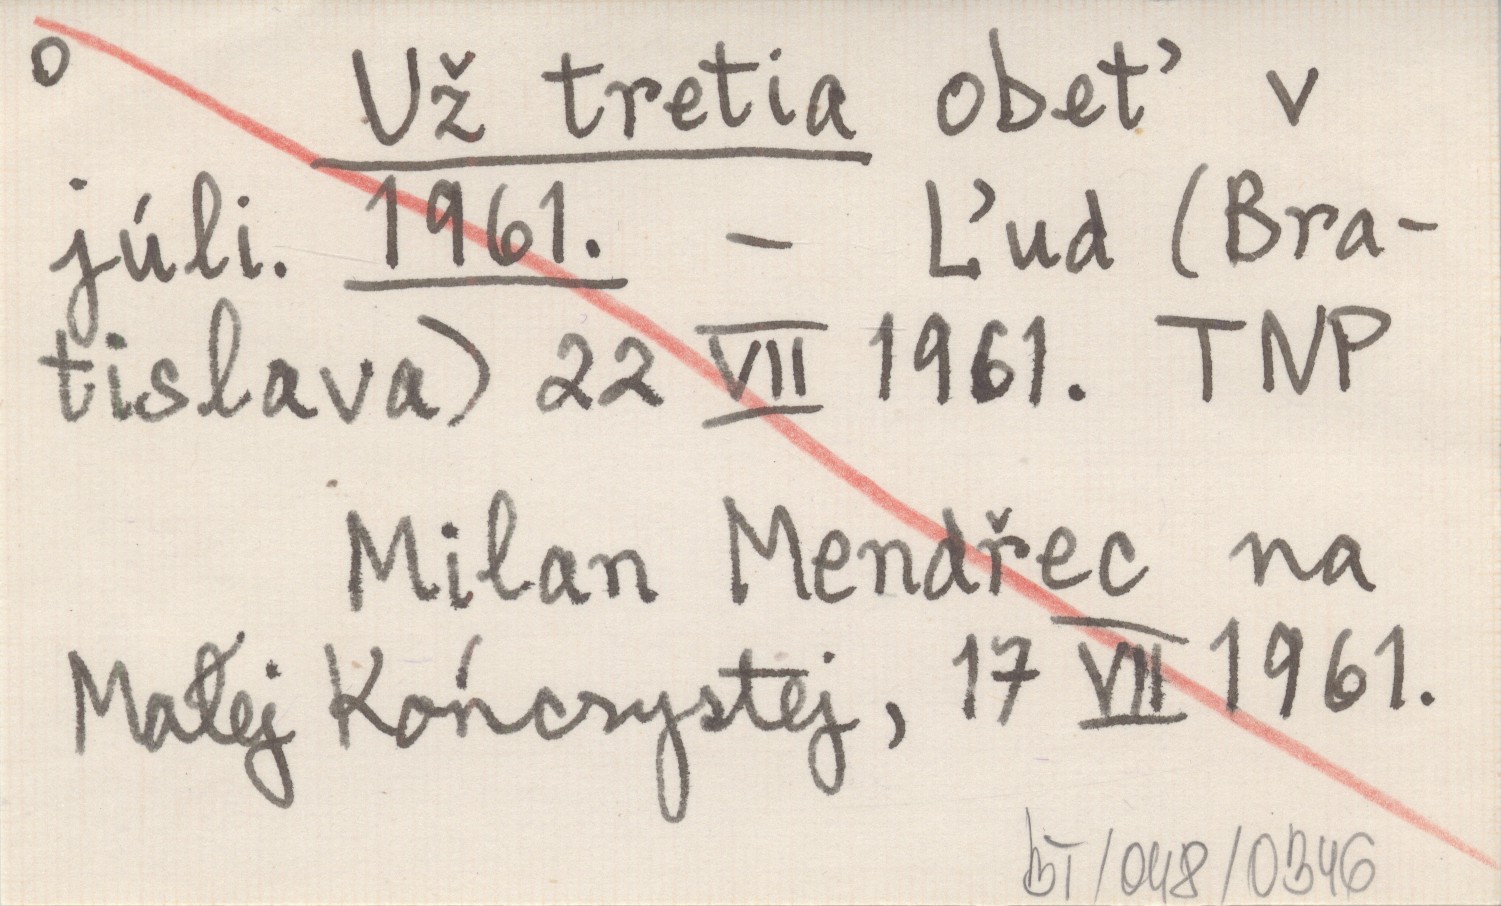 o Už tretia obeť v
júli. 1961. - Ľud (Bra-
tislava) 22 VII 1961. TNP
Milan Mendřec na
Małej Kończystej, 17 VII 1961.
BT/048/0346